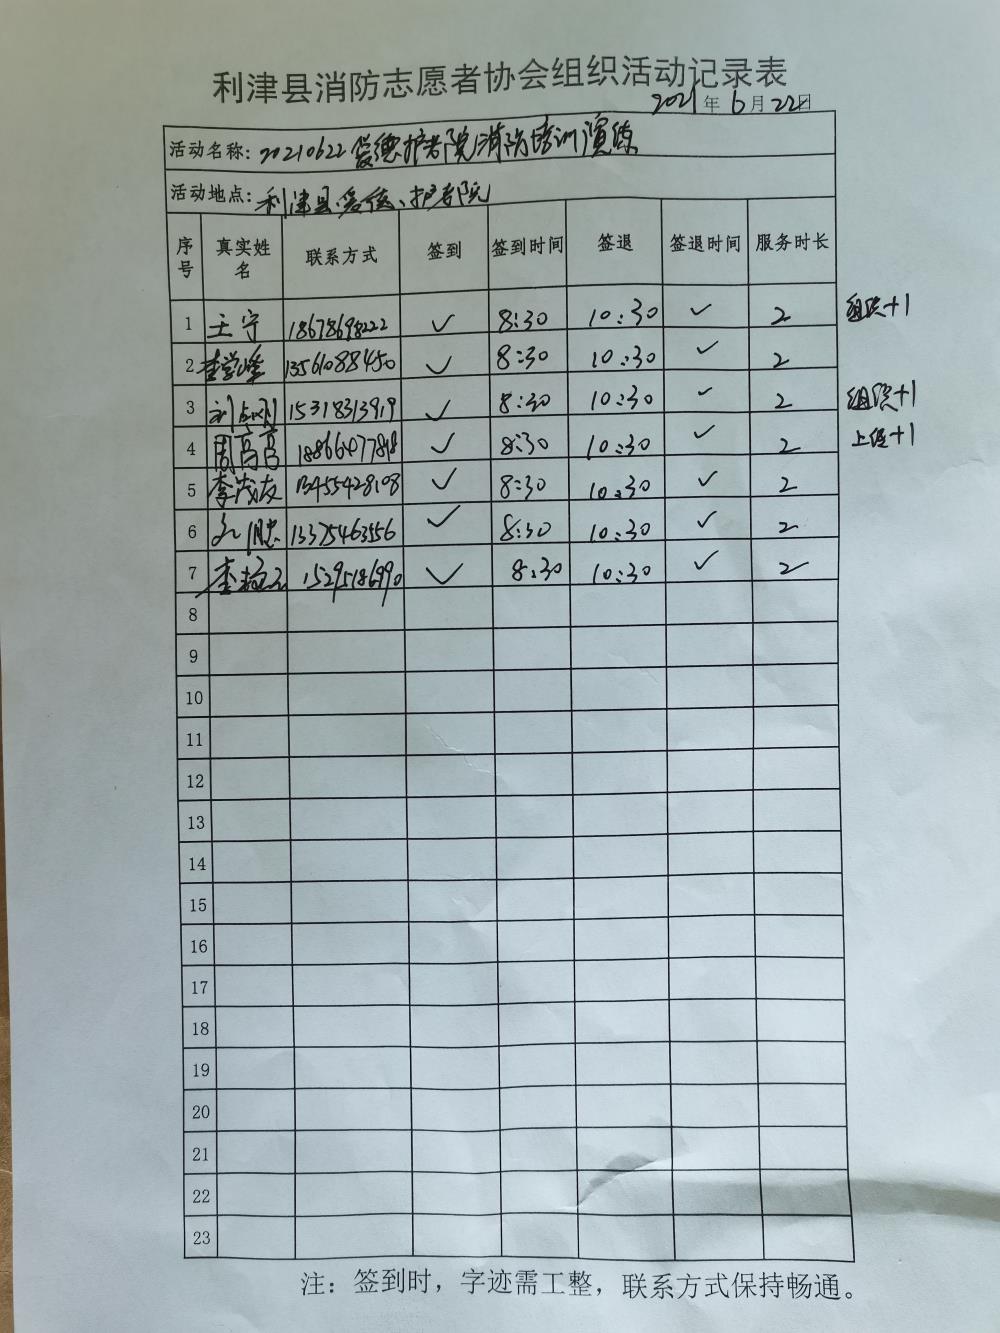 利津县消防志愿者协会组织活动记录表
2021年6月22日
活动名称：20210622爱德护老院消防培训演练
活动地点：利津县爱德护老院
序号 真实姓名 联系方式 签到 签到时间 签退 签退时间 服务时长
1 王宁 18678698222 ✓ 8:30 10:30 ✓ 2 组织+1
2 李学峰 13561088450 ✓ 8:30 10:30 ✓ 2
3 15318313919 ✓ 8:30 10:30 ✓ 2 组织+1
4 周高高 ✓ 8:30 10:30 ✓ 2 上传+1
5 李茂友 13455428108 ✓ 8:30 10:30 ✓ 2
6 13375463556 ✓ 8:30 10:30 ✓ 2
7 15295186990 ✓ 8:30 10:30 ✓ 2
8
9
10
11
12
13
14
15
16
17
18
19
20
21
22
23
注：签到时，字迹需工整，联系方式保持畅通。